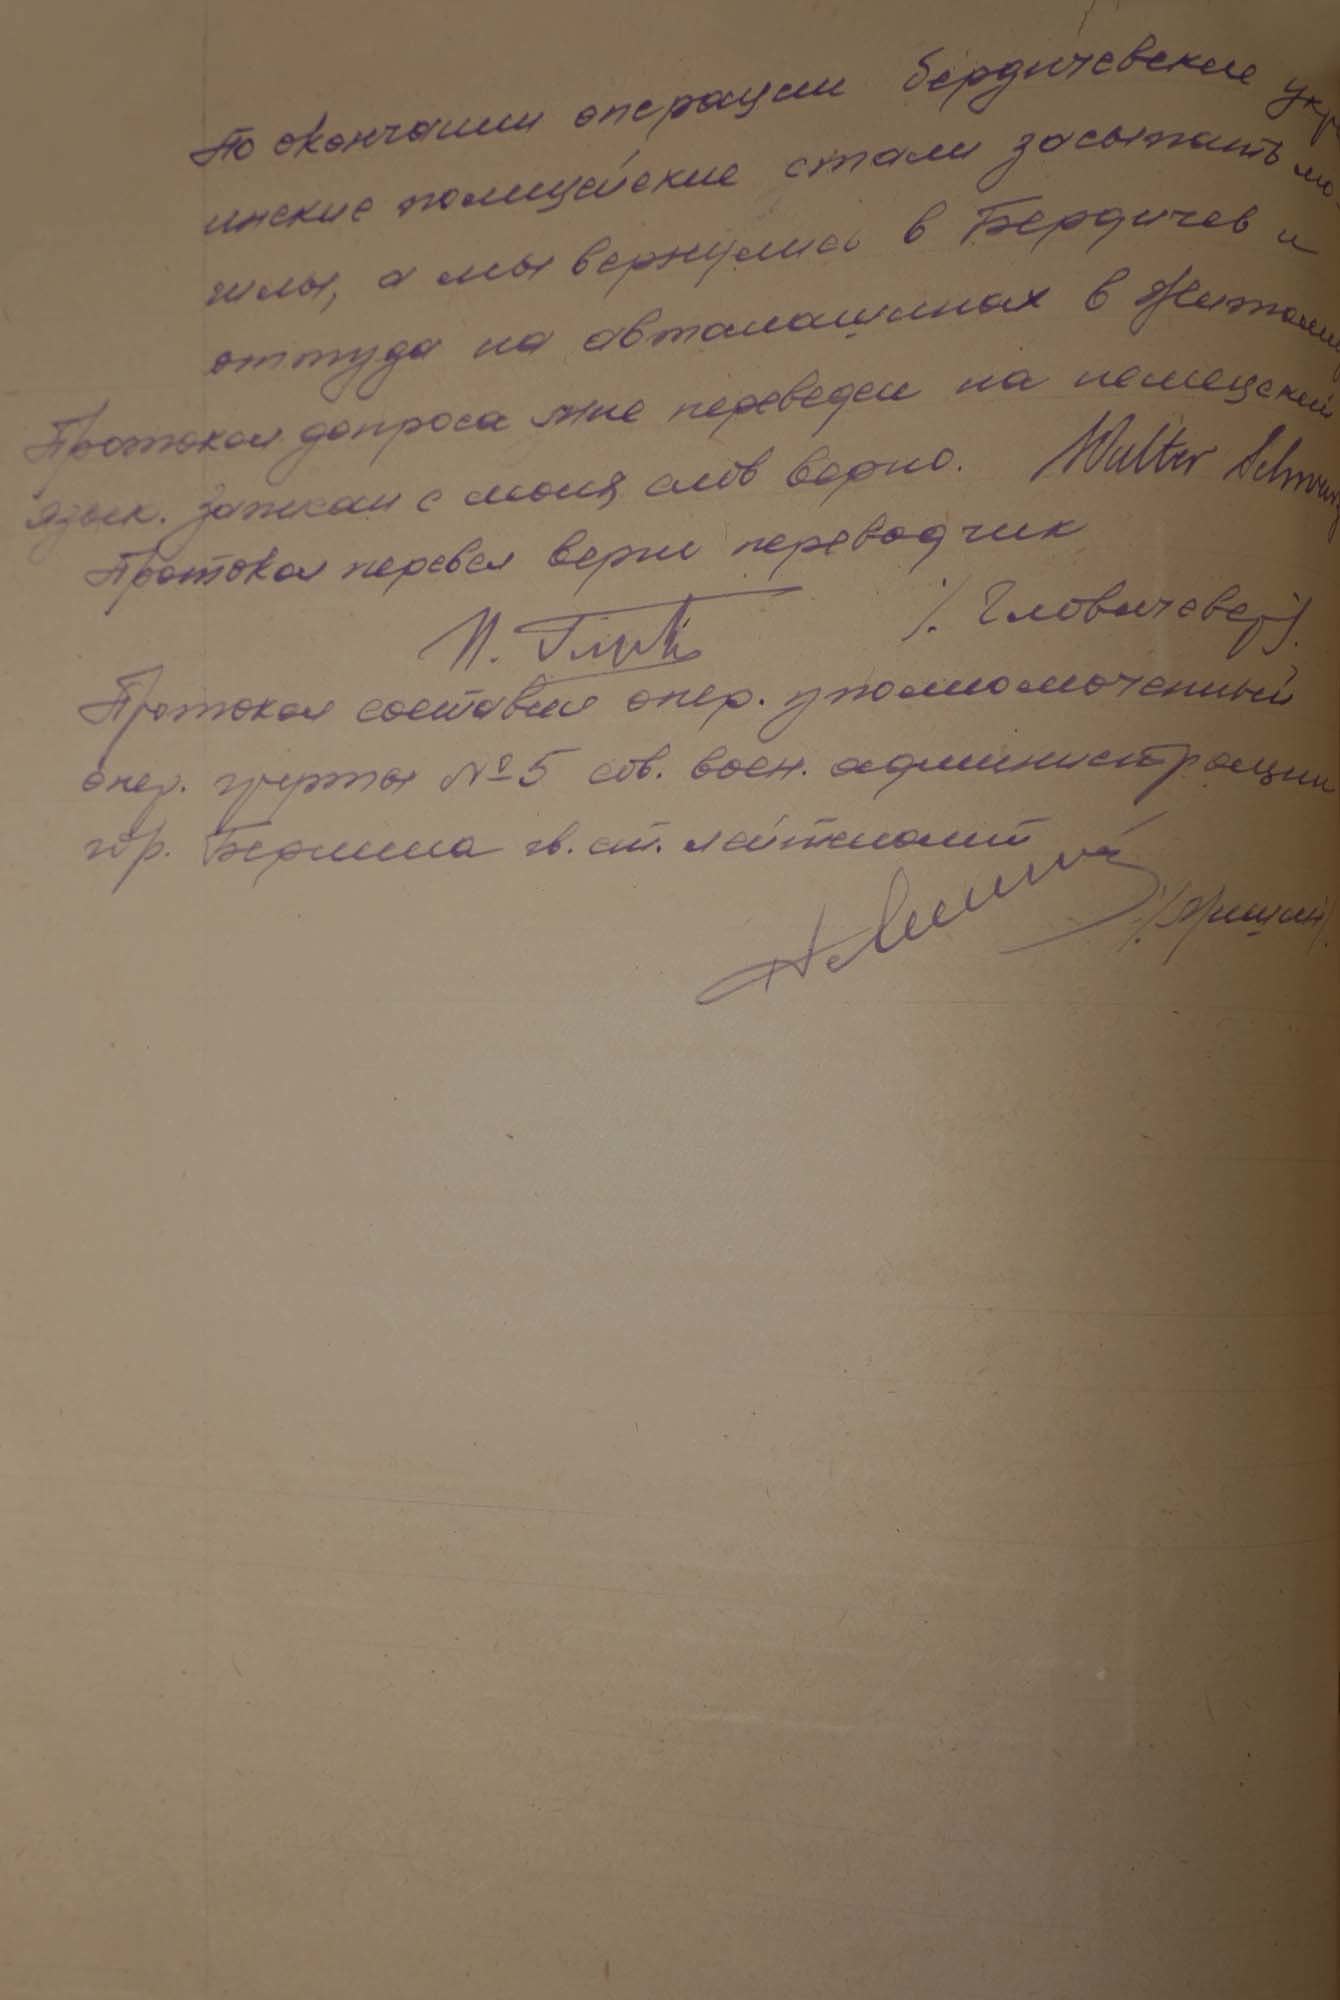 По окончании операции бердичевские укр
инские полицейские стали засыпать мо
гилы, а мы вернулись в Бердичев и
оттуда на автомашинах в Житомир
Протокол допроса мне переведен на немецкий
язык. Записан с моих слов верно. Walter
Протокол перевел верно переводчик
/.Гловичевер/.
Протокол составил опер. уполномоченный
опер. группы №5 сов. воен. администрации
гор. Берлина гв. ст. лейтенант